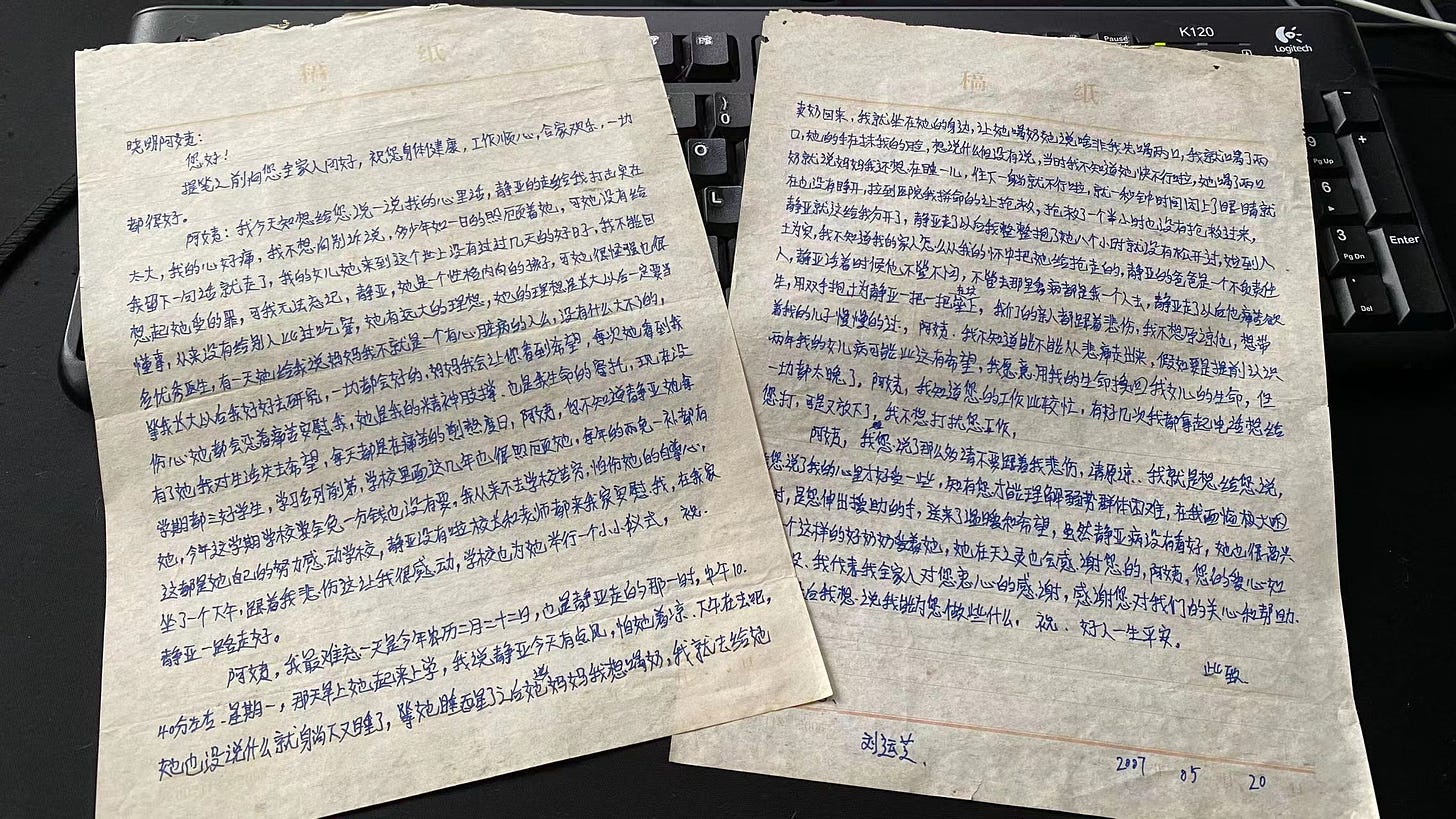 稿 纸
晓明阿姨:
您好!
提笔之前向您全家人问好,祝您身体健康,工作顺心,合家欢乐,一切
都很好。
阿姨:我今天知想给您说一说我的心里话,静亚的走给我打击实在
太大,我的心好痛,我不想向别诉说,多少年如一日的照顾着她,可她没有给
我留下一句话就走了,我的女儿她来到这个世上没有过过几天的好日子,我不能回
想起她受的罪,可我无法忘记,静亚,她是个性格内向的孩子,可她很坚强也很
懂事,从来没有给别人比过吃穿,她有远大的理想,她的理想是长大以后一定要当
名优秀医生,有一天她给我说妈妈我不就是一个有心脏病的人么,没有什么大不了的,
等我长大以后我好好去研究,一切都会好的,妈妈我会让你看到希望,每次她看到我
伤心她都会忍着痛苦安慰我,她是我的精神肢撑、也是我生命的寄托,现在没
有了她我对生活失去希望,每天都是在痛苦的煎熬度日,阿姨,您不知道静亚她每
学期都三好学生,学习名列前第,学校里面这几年也很照顾她,每年的两免一补都有
她,今年这学期学校要全免一分钱也没有要。我从来不去学校苦穷,怕伤她的自尊心,
这都是她自己的努力感动学校,静亚没有啦校长和老师都来我家安慰我,在我家
坐了一个下午,跟着我悲伤这让我很感动,学校也为她举行一个小小仪式,祝.
静亚一路走好。
阿姨,我最难忘一天是今年农历二月二十二日,也是静亚走的那一时,中午10.
40分左右.星期一,那天早上她起来上学,我说静亚今天有点风,怕她着凉、下午在去吧,
她也没说什么就身尚下又睡了,等她睡醒了之后她说妈妈我想喝奶,我就去给她
稿 纸
卖奶回来,我就坐在她的身边,让她喝奶她说啥非我先喝两口,我就喝了两
口,她的手在抹我的脸,想说什么但没有说,当时我不知道她快不行啦,她喝了两口
奶就说妈妈我还想在睡一儿,住下一躺就不行啦,就一秒钟时间闭上了眼睛就
在也没有睁开,拉到医院我拼命的让抢救,抢救了个半小时也没有抢救过来,
静亚就这给我分开了,静亚走了以后我整整抱了她八个小时就没有松开过,她到入
土为安,我不知道我的家人怎么从我的怀里把她给抢走的,静亚的爸爸是一个不负责任
人,静亚活着时候他不管不问,不管去那里看病都是我一个人去,静亚走了以后他痛苦欲
生,用双手把土为静亚一把一把垒上,我们的亲人都跟着悲伤,我不想原谅他,想带
着我的儿子慢慢的过,阿姨.我不知道能不能从悲痛走出来,假如要是提前认识
两年我的女儿病可能比这有希望,我愿意用我的生命换回我女儿的生命,但
一切都太晚了,阿姨,我知道您的工作比较忙,有好几次我都拿起电话想给
您打,可是又放下了,我不想打扰您工作,
阿姨,我您说了那么多请不要跟着我悲伤,请原谅、我就是想给您说,
您说了我的心里才好受一些,知有您才能理解弱势群体困难,在我面临极大困
时,是您伸出援助的手,送来了温暖和希望,虽然静亚病没有看好,她也很高兴
个这样的好奶奶爱着她,她在天之灵也会感谢您的,阿姨,您的爱心如
我代表我全家人对您衷心的感谢,感谢您对我们的关心和帮助.
后我想说我能为您做些什么,祝、好人一生平安。
此致
刘运芝.
2007 05 20
K120
Logitech
Pause
9
Pg Up
6
3
Pg Dn
Enter
Del
+
0
O
L